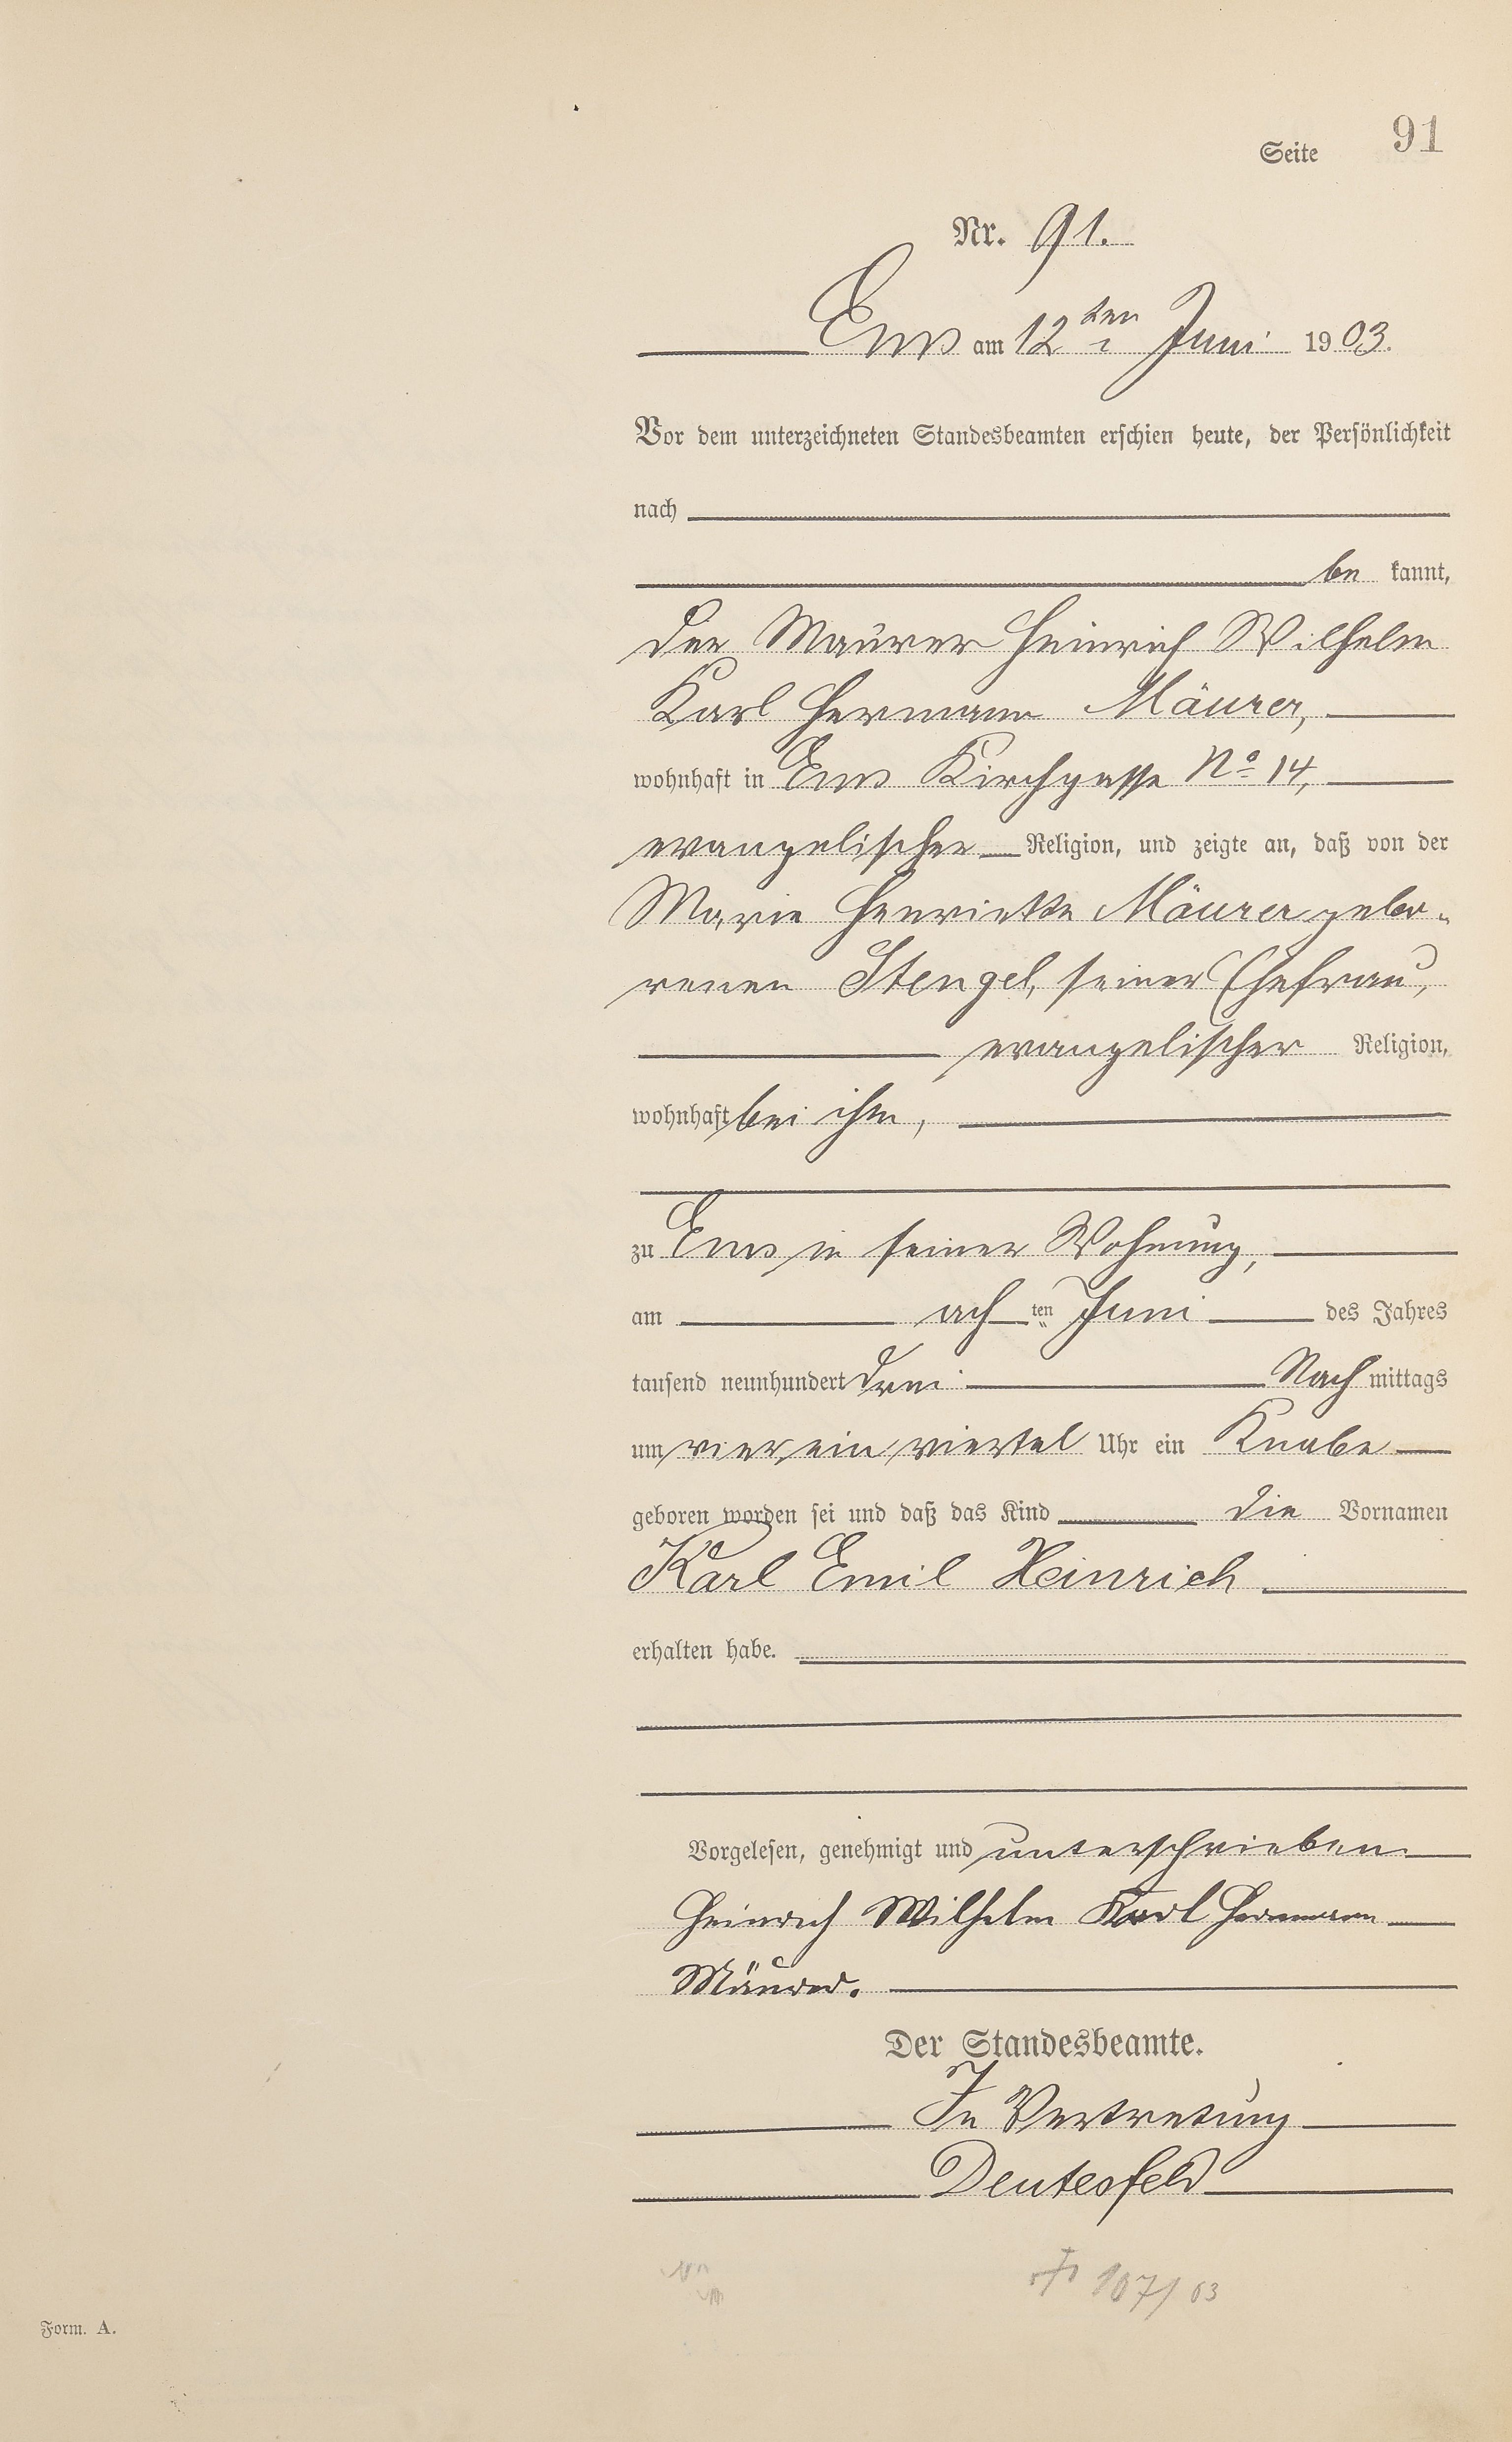 Seite 91
Nr. 91.
Ems am 12ten Juni 1903.
Vor dem unterzeichneten Standesbeamten erschien heute, der Persönlichkeit
nach
be kannt,
der Maurer Heinrich Wilhelm
Karl Hermann Mäurer,
wohnhaft in Ems Kirchgasse No 14,
evangelischer Religion, und zeigte an, daß von der
Marie Henriette Mäurer gebo-
renen Stengel, seiner Ehefrau,
evangelischer Religion,
wohnhaft bei ihm,
zu Ems in seiner Wohnung,
am ach ten Juni des Jahres
tausend neunhundert drei Nach mittags
um vier ein viertel Uhr ein Knabe
geboren worden sei und daß das Kind die Vornamen
Karl Emil Heinrich
erhalten habe.
Vorgelesen, genehmigt und unterschrieben
Heinrich Wilhelm Karl Hermann
Mäurer.
Der Standesbeamte.
In Vertretung
Deutesfeld
† 107/03
Form. A.